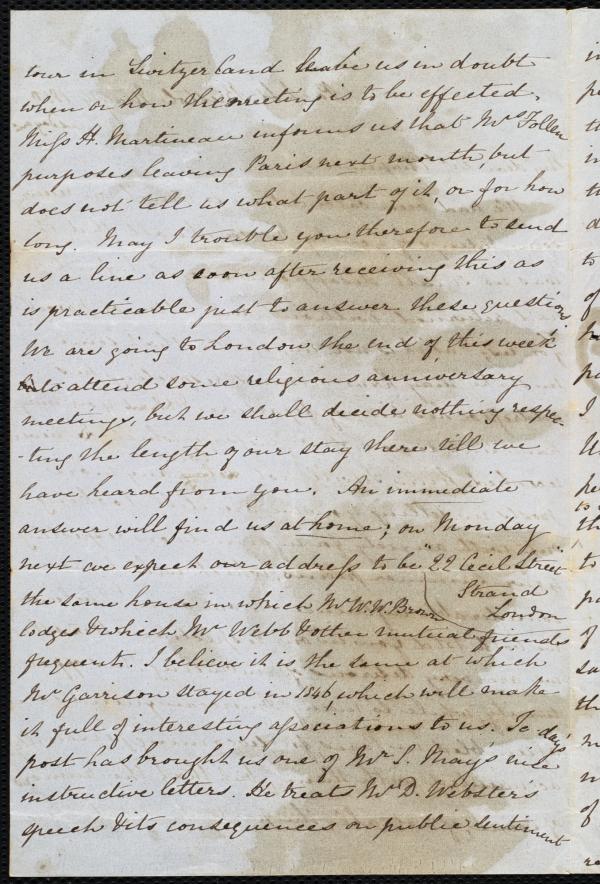 tour in Switzerland leave us in doubt
when or how the meeting is to be effected.
Miss H. Martineau informs us that Mrs Follen
purposes leaving Paris next month, but
does not tell us what part of it, or for how
long. May I trouble you therefore to send
us a line as soon after receiving this as
is practicable just to answer these questions.
We are going to London the end of this week
to attend some religious anniversary
meetings, but we shall decide nothing respec-
-ting the length of our stay there till we
have heard from you. An immediate
answer will find us at home; on Monday
next we expect our address to be "22 Cecil Street"
Strand
the same house in which Mr W. W. Brown London
lodges & which Mr Webb & other mutual friends
frequent. I believe it is the same at which
Mr Garrison stayed in 1846, which will make
it full of interesting associations to us. To day's
post has brought us one of Mr S. May's nice
instructive letters. He treats Mr D. Webster's
speech & its consequences on public sentiment